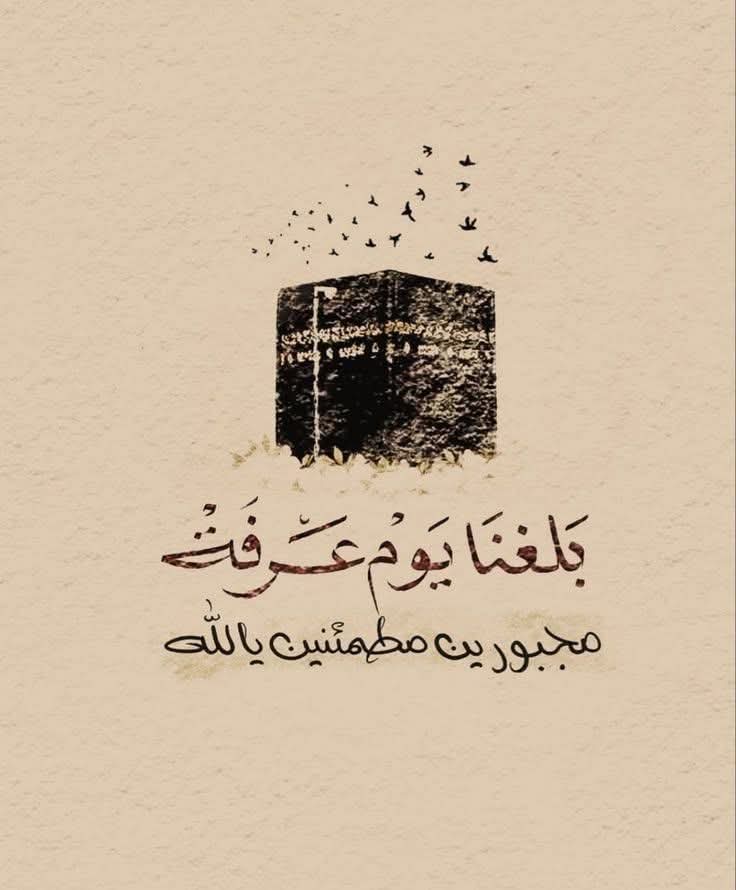 بَلغنَا يَوْم عَرَفَةْ
مجبورين مطمئنين يالله